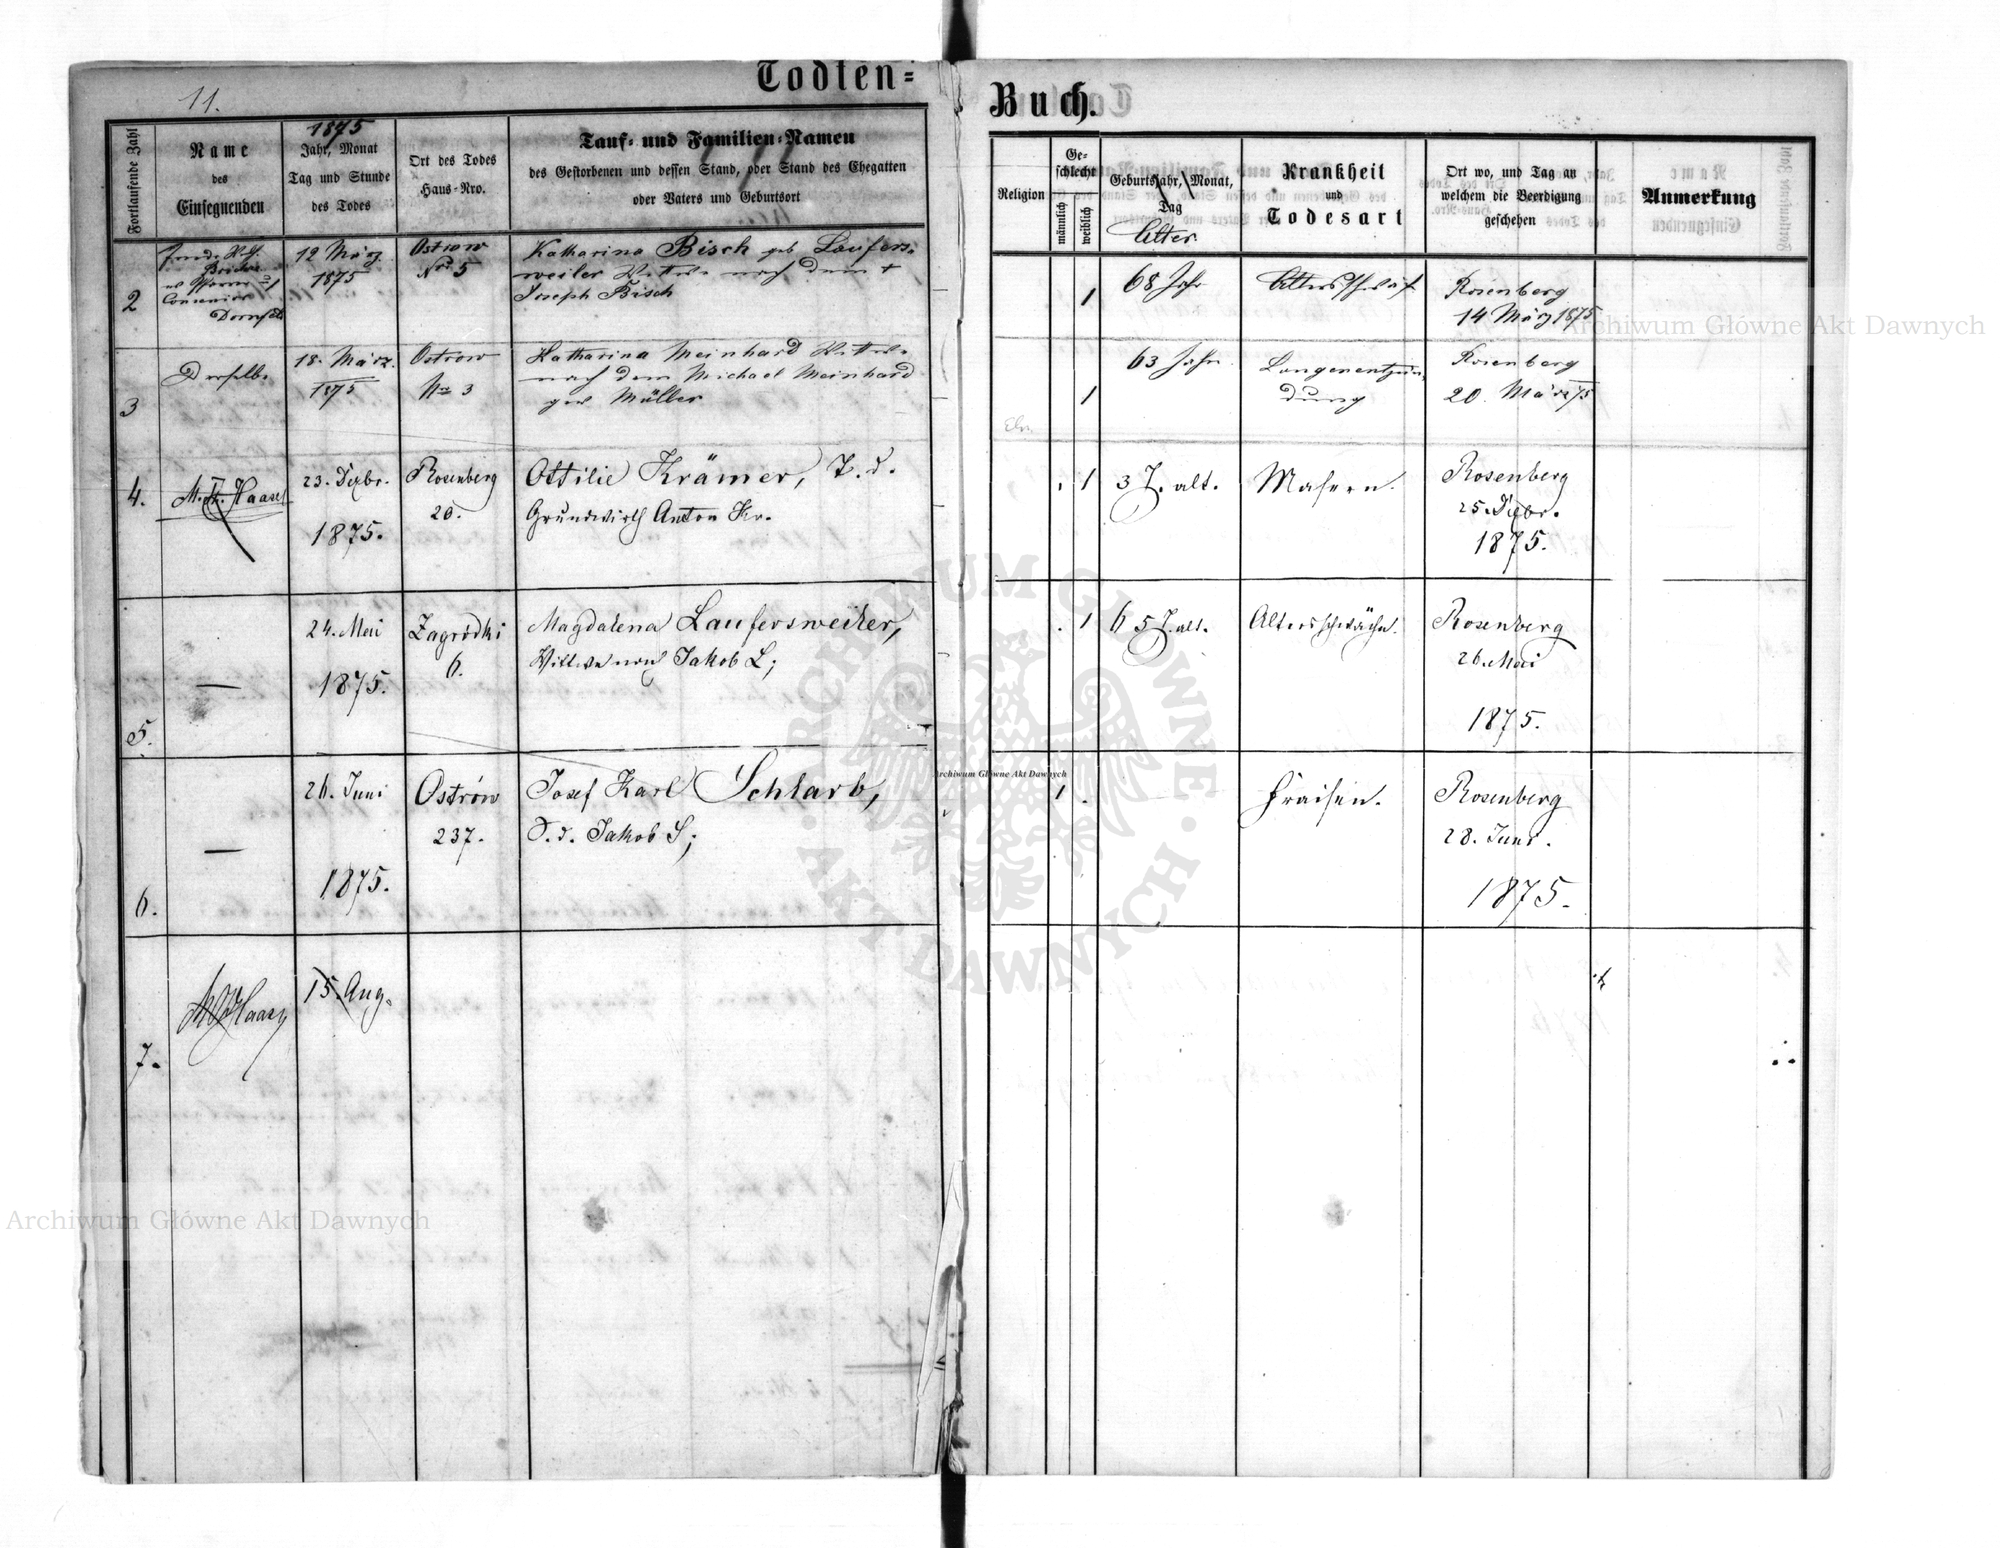 Todten=
Buch.
11.
Fortlaufende Zahl
Name
des
Einsegnenden
1875
Jahr, Monat
Tag und Stunde
des Todes
Ort des Todes
Haus-Nro.
Tauf- und Familien-Namen
des Gestorbenen und dessen Stand, oder Stand des Ehegatten
oder Vaters und Geburtsort
Religion
Ge-
schlecht
männlich
weiblich
Geburtsjahr, Monat,
Tag
Alter
Krankheit
und
Todesart
Ort wo, und Tag an
welchem die Beerdigung
geschehen
Anmerkung
2
12 März
1875
Ostrow
Nro 5
Katharina Bisch geb Laufers-
weiler Wittwe nach dem +
Joseph Bisch
1
68 Jahr
Rosenberg
14 März 1875
3
Derselbe
18. März
1875
Ostrow
No 3
Katharina Meinhard Wittwe
nach dem Michael Meinhard
geb Müller
1
63 Jahr
Lungenentzün-
dung
Rosenberg
20. März 75
4.
Haasel
23. Dezbr.
1875.
Rosenberg
20.
Ottilie Krämer, T. d.
Grundwirth Anton Kr.
1
3 J. alt.
Masern.
Rosenberg
25. Dezbr.
1875.
5.
—
24. Mai
1875.
Zagródki
6.
Magdalena Laufersweiler,
Wittwe nach Jakob L;
1
65 J. alt.
Altersschwäche.
Rosenberg
26. Mai
1875.
6.
—
26. Juni
1875.
Ostrów
237.
Josef Karl Schlarb,
S. d. Jakob S;
1
Fraisen.
Rosenberg
28. Juni.
1875.
7.
15. Aug.
Archiwum Główne Akt Dawnych
Archiwum Główne Akt Dawnych
Archiwum Główne Akt Dawnych
ARCHIWUM GŁÓWNE · AKT DAWNYCH ·